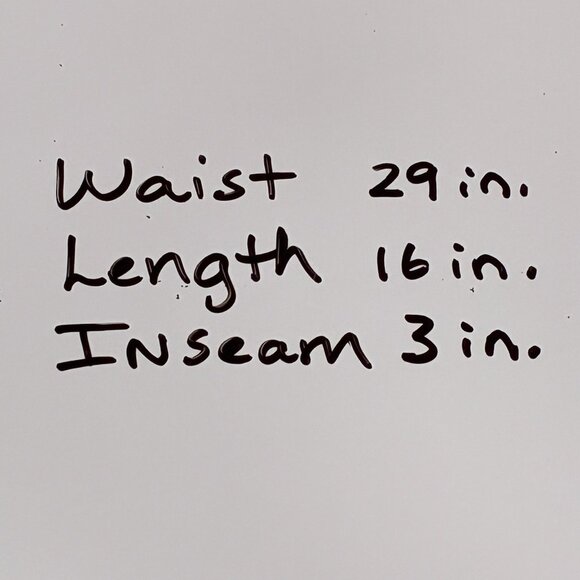 Waist 29 in.
Length 16 in.
Inseam 3 in.